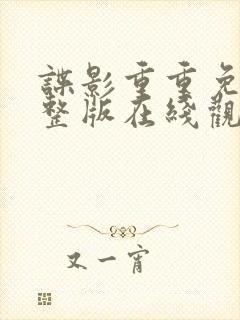 諜影重重免
整版在綫觀
又一宵